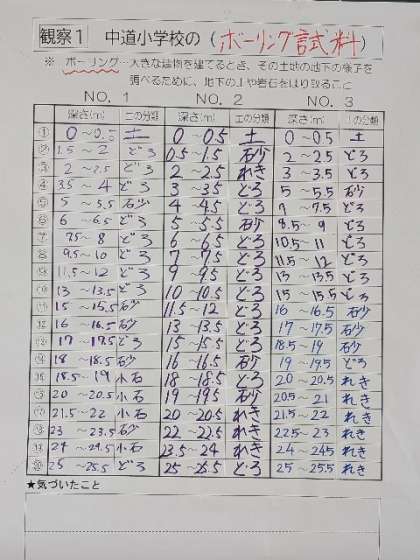 観察1 中道小学校の(ボーリング試料)
※ ボーリング…大きな建物を建てるとき、その土地の地下の様子を
調べるために、地下の土や岩石をほり取ること
NO. 1 NO. 2 NO. 3
深さ(m) 土の分類 深さ(m) 土の分類 深さ(m) 土の分類
① 0 ~0.5 土 0 ~ 0.5 土 0 ~ 0.5 土
② 1.5 ~ 2 どろ 0.5 ~ 1.5 砂 2 ~ 2.5 どろ
③ 2 ~ 2.5 どろ 2 ~ 2.5 れき 3 ~ 3.5 どろ
④ 3.5 ~ 4 どろ 3 ~ 3.5 どろ 5 ~ 5.5 砂
⑤ 5 ~ 5.5 砂 4 ~ 4.5 どろ 7 ~ 7.5 どろ
⑥ 6 ~ 6.5 どろ 5 ~ 5.5 砂 8.5 ~ 9 どろ
⑦ 7.5 ~ 8 どろ 6 ~ 6.5 どろ 10.5 ~ 11 どろ
⑧ 9.5 ~ 10 どろ 7 ~ 7.5 どろ 11.5 ~ 12 どろ
⑨ 11.5 ~ 12 どろ 9 ~ 9.5 どろ 13 ~ 13.5 どろ
⑩ 13 ~ 13.5 どろ 10 ~ 10.5 どろ 15 ~ 15.5 どろ
⑪ 15 ~ 15.5 砂 11.5 ~ 12 どろ 16 ~ 16.5 砂
⑫ 16 ~ 16.5 砂 13 ~ 13.5 どろ 17 ~ 17.5 砂
⑬ 17 ~ 17.5 どろ 15 ~ 15.5 どろ 18.5 ~ 19 砂
⑭ 18 ~ 18.5 砂 16 ~ 16.5 砂 19 ~ 19.5 どろ
⑮ 18.5 ~ 19 小石 18 ~ 18.5 どろ 20 ~ 20.5 れき
⑯ 20 ~ 20.5 小石 19 ~ 19.5 砂 20.5 ~ 21 れき
⑰ 21.5 ~ 22 小石 20 ~ 20.5 れき 21.5 ~ 22 れき
⑱ 23 ~ 23.5 砂 22 ~ 22.5 れき 22.5 ~ 23 れき
⑲ 24 ~ 24.5 小石 23.5 ~ 24 れき 24 ~ 24.5 れき
⑳ 25 ~ 25.5 どろ 25 ~ 25.5 どろ 25 ~ 25.5 れき
★気づいたこと